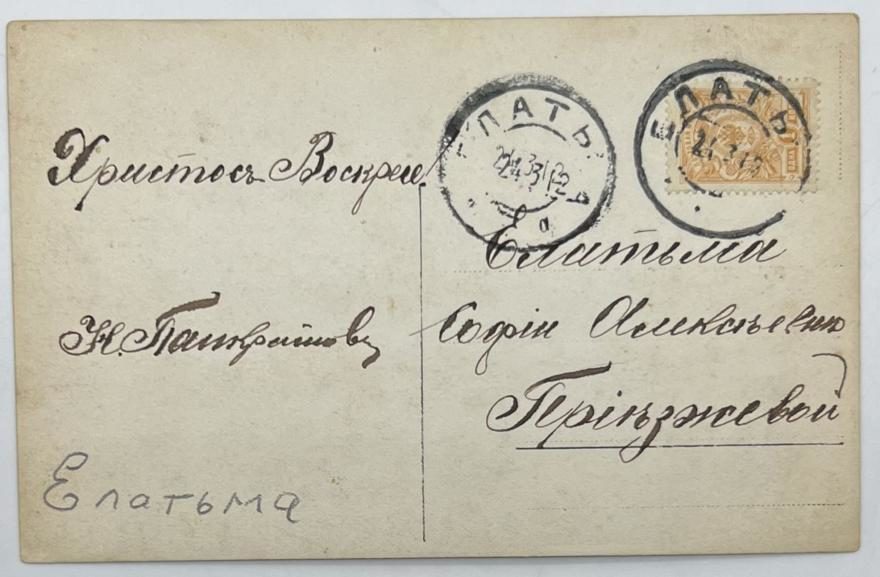 Христосъ Воскресе
Н. Панкратовъ
Елатьма
ЕЛАТЬМА
24 3 12
а
ЕЛАТЬМ
24 3 12
Елатьма
Софіи Алексѣевнѣ
Пріѣзжевой